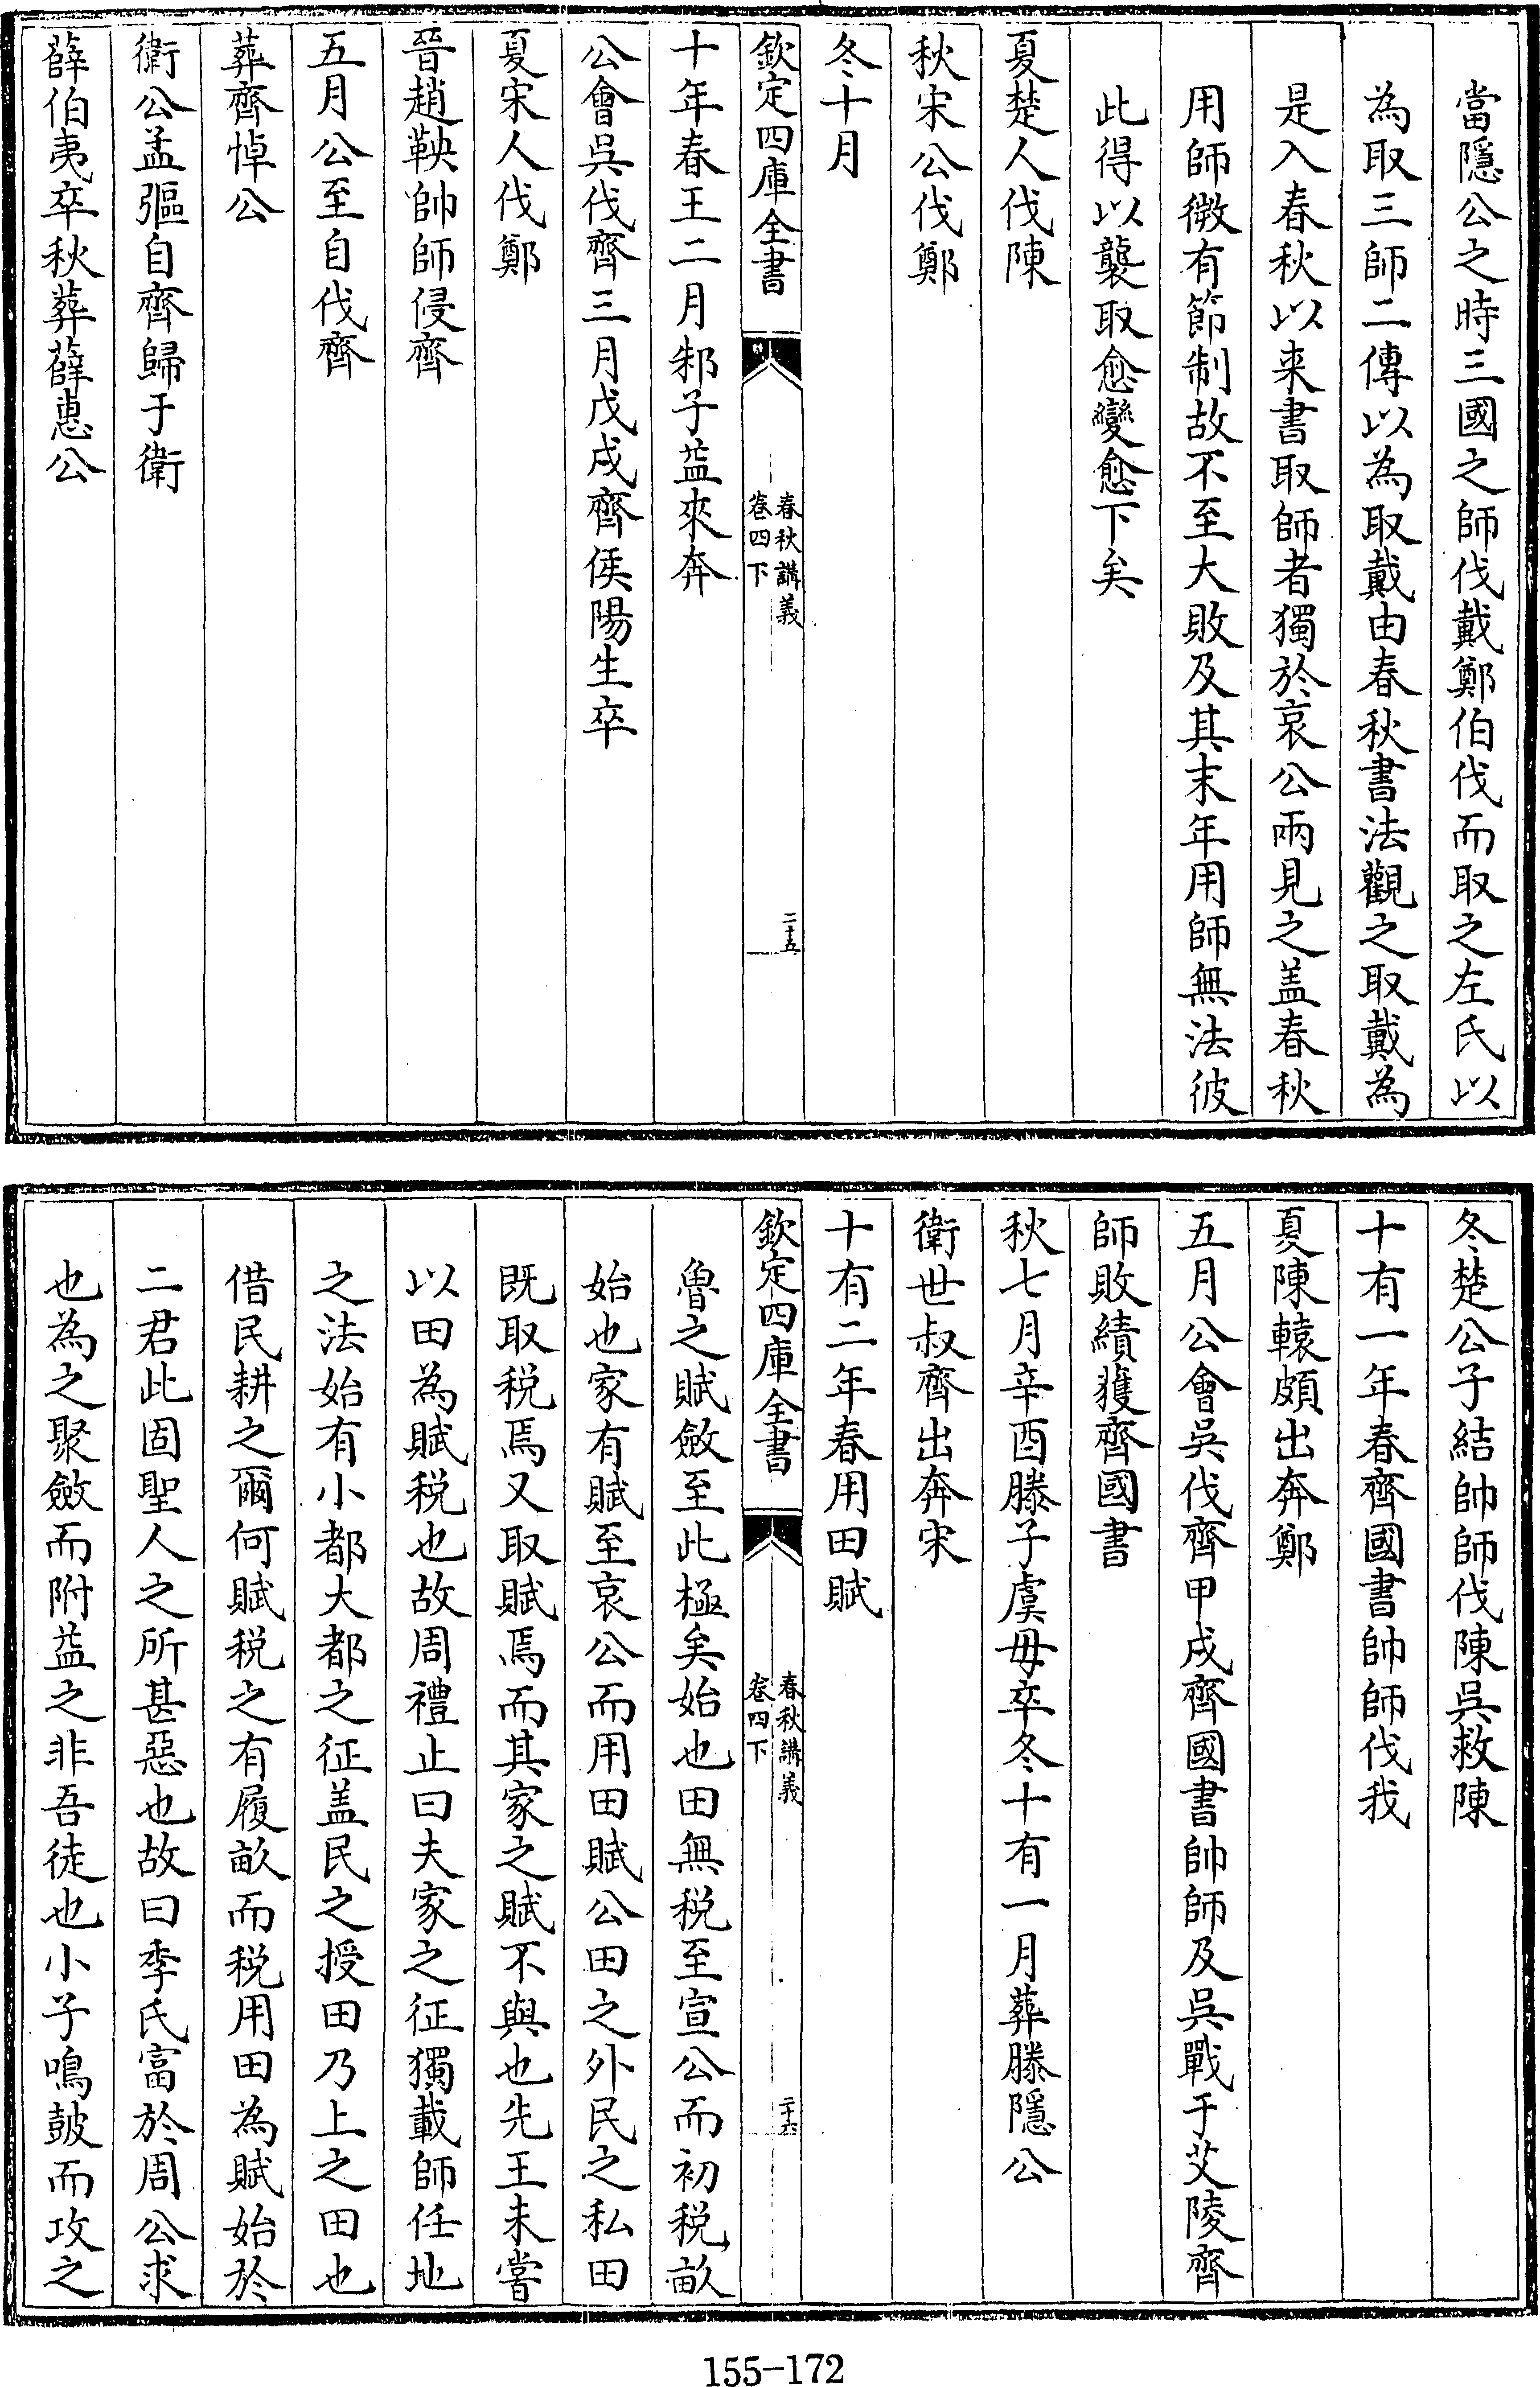 當隱公之時三國之師伐戴鄭伯伐而取之左氏以
為取三師二傳以為取戴由春秋書法觀之取戴為
是入春秋以来書取師者獨於哀公兩見之盖春秋
用師微有節制故不至大敗及其末年用師無法彼
此得以襲取愈變愈下矣
夏楚人伐陳
秋宋公伐鄭
冬十月
欽定四庫全書
春秋講義
卷四下
二十五
十年春王二月邾子益來奔
公會吳伐齊三月戊戌齊侯陽生卒
夏宋人伐鄭
晉趙鞅帥師侵齊
五月公至自伐齊
葬齊悼公
衛公孟彄自齊歸于衛
薛伯夷卒秋葬薛惠公
冬楚公子結帥師伐陳吳救陳
十有一年春齊國書帥師伐我
夏陳轅頗出奔鄭
五月公會吳伐齊甲戌齊國書帥師及吳戰于艾陵齊
師敗績獲齊國書
秋七月辛酉滕子虞毋卒冬十有一月葬滕隱公
衛世叔齊出奔宋
十有二年春用田賦
欽定四庫全書
春秋講義
卷四下
二十六
魯之賦斂至此極矣始也田無税至宣公而初税畝
始也家有賦至哀公而用田賦公田之外民之私田
既取税焉又取賦焉而其家之賦不與也先王未嘗
以田為賦税也故周禮止曰夫家之征獨載師任地
之法始有小都大都之征盖民之授田乃上之田也
借民耕之爾何賦税之有履畝而税用田為賦始於
二君此固聖人之所甚惡也故曰季氏富於周公求
也為之聚斂而附益之非吾徒也小子鳴鼓而攻之
155-172